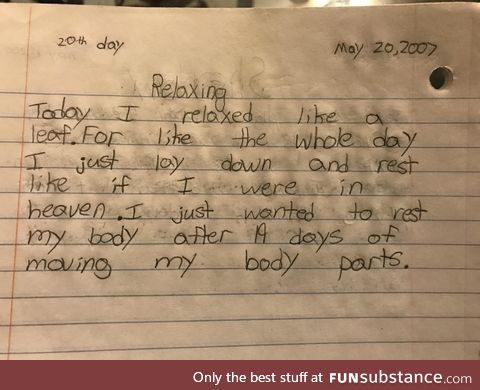 20th day May 20,2007
Relaxing
Today I relaxed like a
leaf. For like the whole day
I just lay down and rest
like if I were in
heaven. I just wanted to rest
my body after 19 days of
moving my body parts.
Only the best stuff at FUNsubstance.com